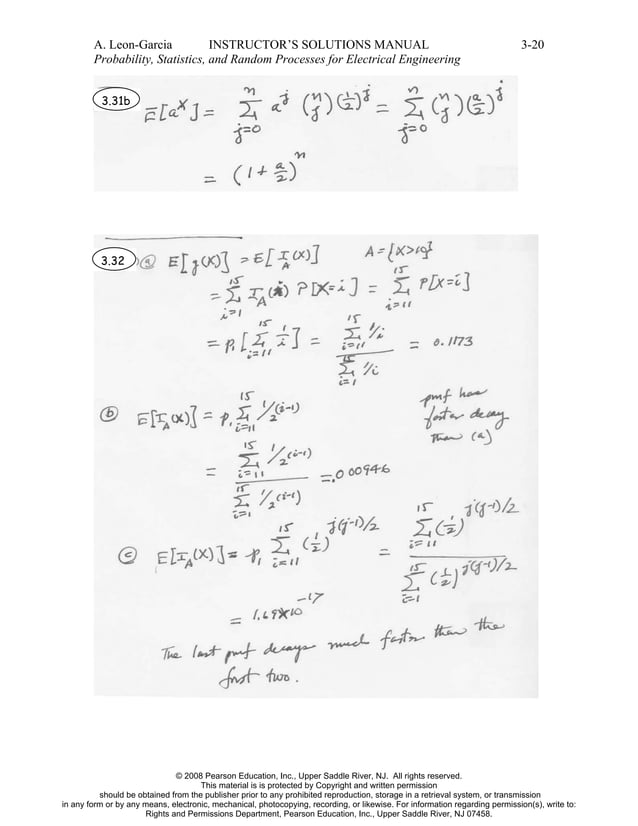 A. Leon-Garcia INSTRUCTOR'S SOLUTIONS MANUAL 3-20
Probability, Statistics, and Random Processes for Electrical Engineering
3.31b E[a^X] = ∑_{j=0}^{n} a^j (n j)(1/2)^j = ∑_{j=0}^{n} (n j)(a/2)^j
= (1 + a/2)^n
3.32 (a) E[g(X)] = E[I_A(X)] A = {X>10}
= ∑_{i=1}^{15} I_A(i) P[X=i] = ∑_{i=11}^{15} P[X=i]
= p_1 [∑_{i=11}^{15} 1/i] = ∑_{i=11}^{15} 1/i / ∑_{i=1}^{15} 1/i = 0.1173
(b) E[I_A(X)] = p_1 ∑_{i=11}^{15} 1/2^{(i-1)}
pmf has
faster decay
than (a)
= ∑_{i=11}^{15} 1/2^{(i-1)} / ∑_{i=1}^{15} 1/2^{(i-1)} = .00946
(c) E[I_A(X)] = p_1 ∑_{i=11}^{15} (1/2)^{j(j-1)/2} = ∑_{i=11}^{15} (1/2)^{j(j-1)/2} / ∑_{i=1}^{15} (1/2)^{j(j-1)/2}
= 1.69×10^{-17}
The last pmf decays much faster than the
first two.
© 2008 Pearson Education, Inc., Upper Saddle River, NJ. All rights reserved.
This material is is protected by Copyright and written permission
should be obtained from the publisher prior to any prohibited reproduction, storage in a retrieval system, or transmission
in any form or by any means, electronic, mechanical, photocopying, recording, or likewise. For information regarding permission(s), write to:
Rights and Permissions Department, Pearson Education, Inc., Upper Saddle River, NJ 07458.